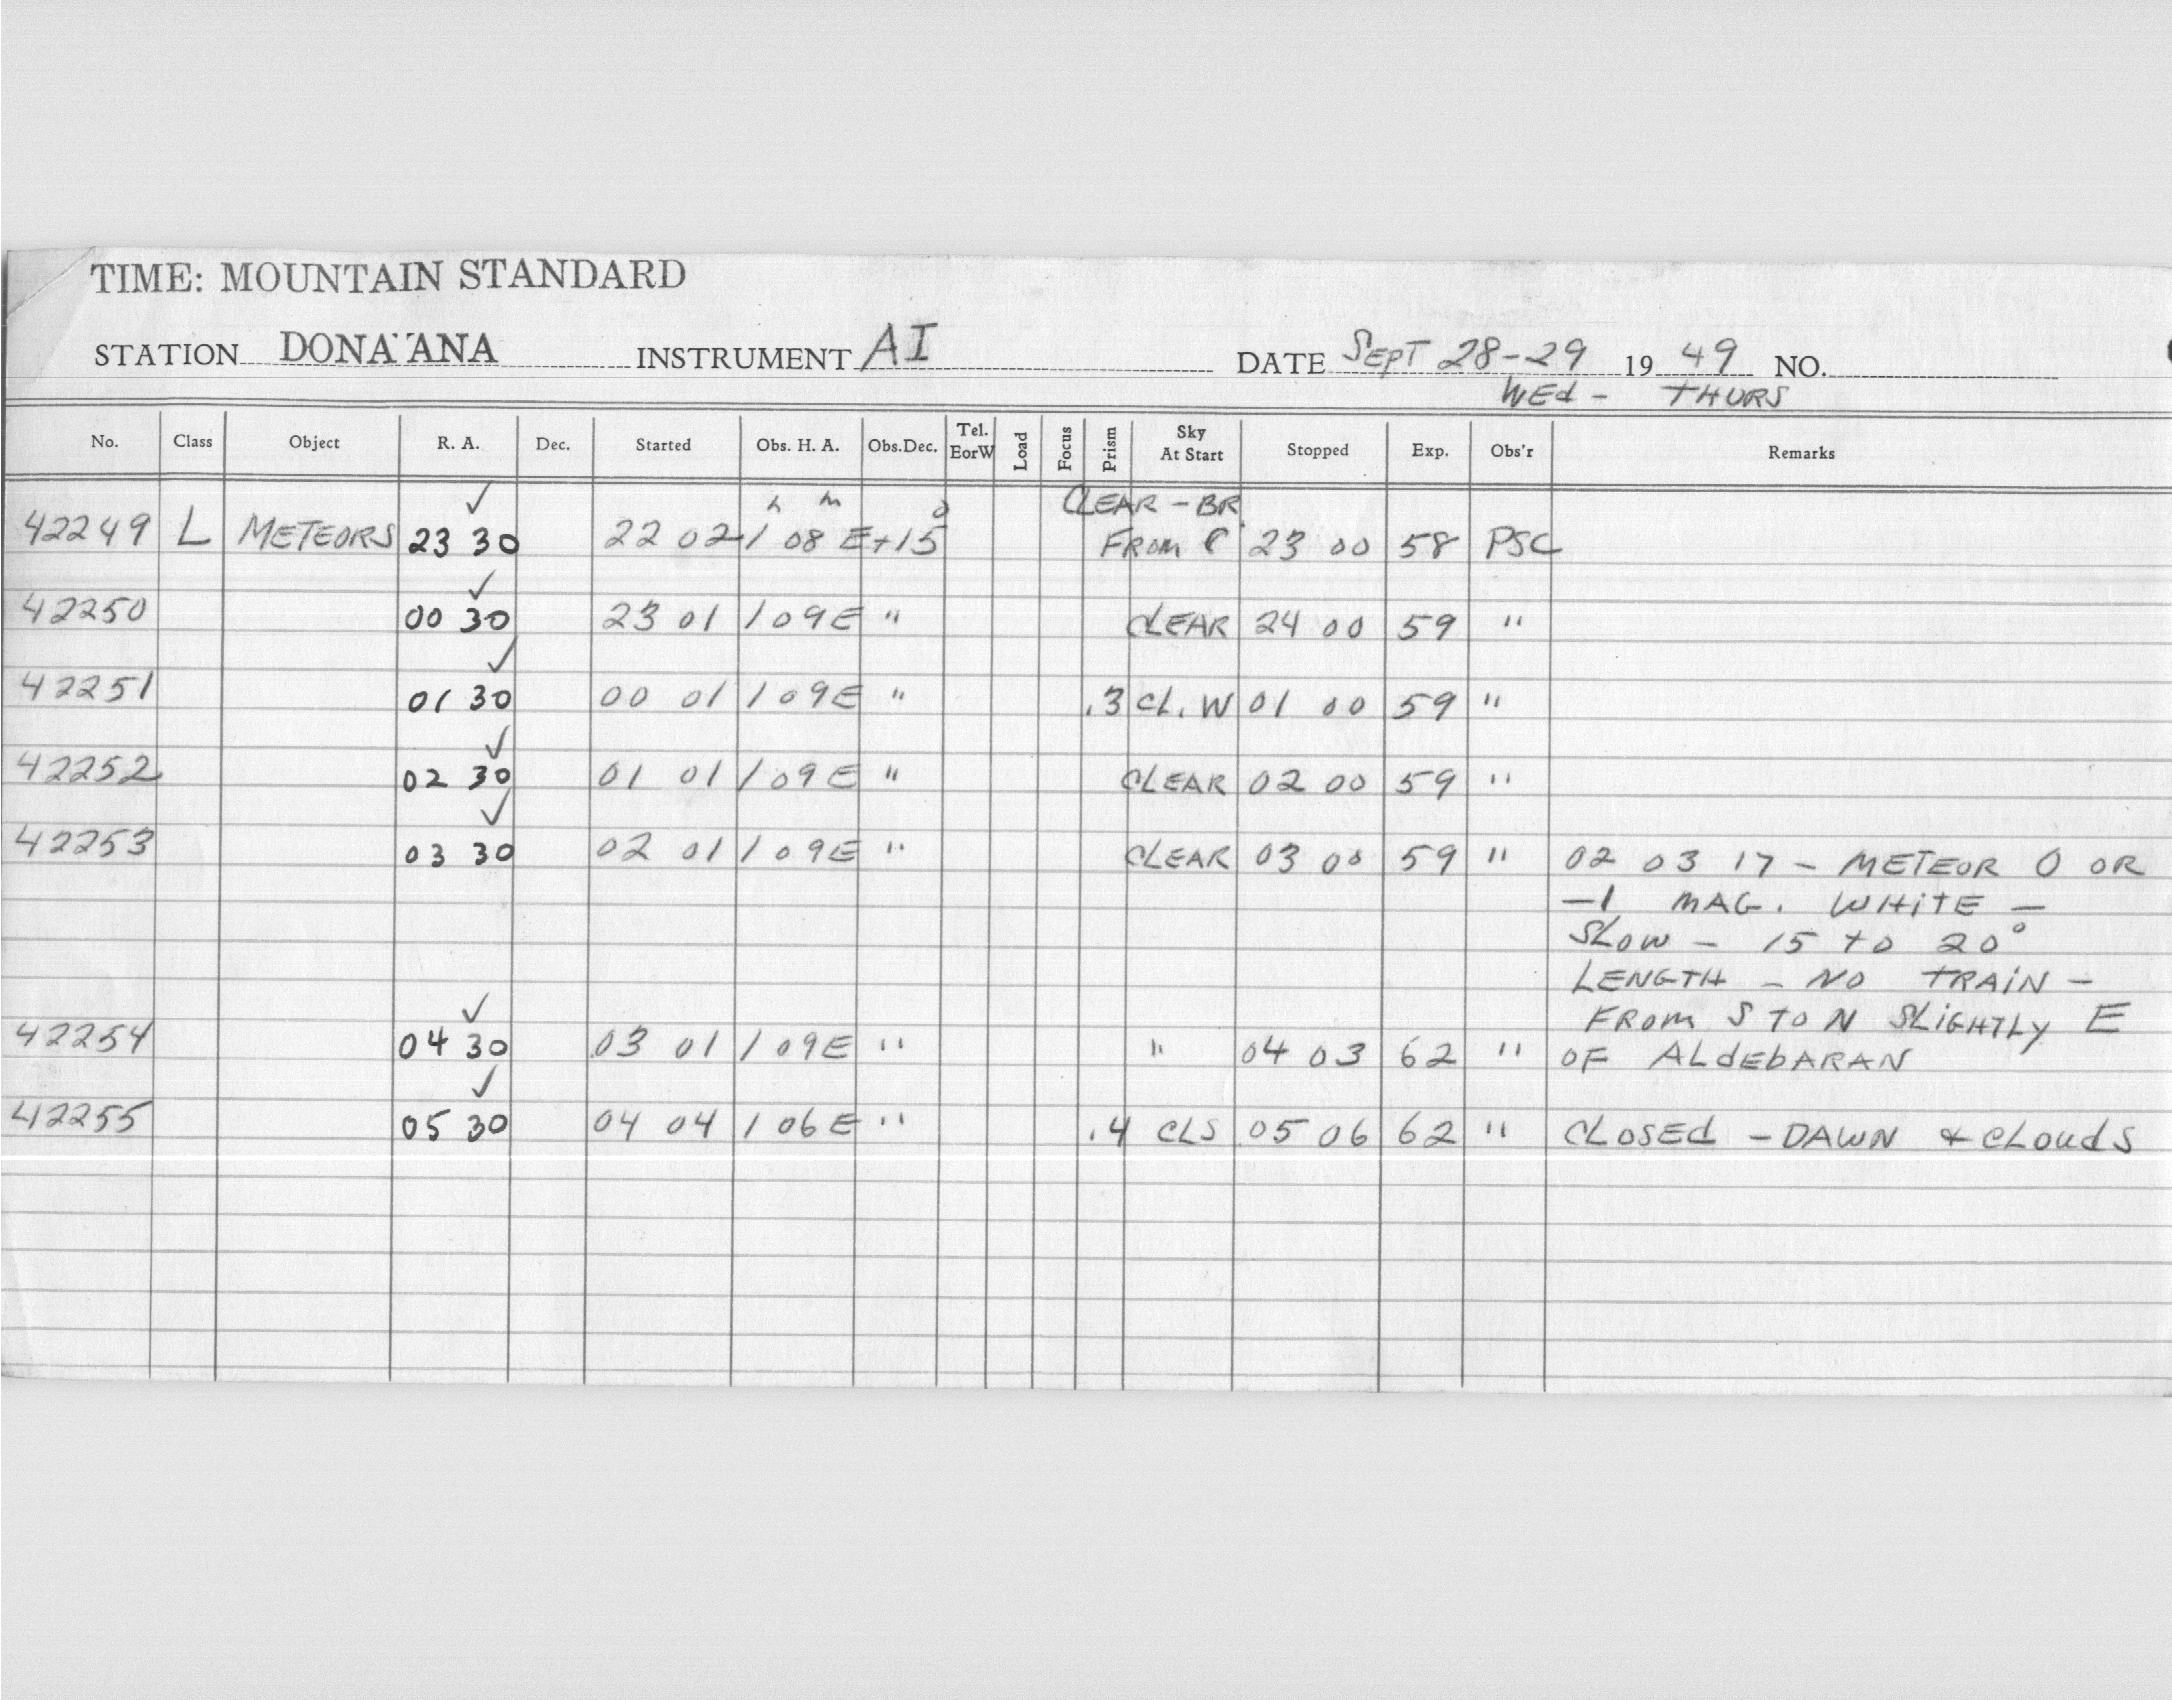 TIME: MOUNTAIN STANDARD
STATION DONA ANA INSTRUMENT AI DATE SEPT 28-29 19 49 NO.
WEd - THURS
No. Class Object R. A. Dec. Started Obs. H. A. Obs.Dec. Tel. EorW Load Focus Prism Sky At Start Stopped Exp. Obs'r Remarks
✓ h m o CLEAR - BR
42249 L METEORS 23 30 22 02 1 08 E +15 FROM 23 00 58 PSC
✓
42250 00 30 23 01 1 09E " CLEAR 24 00 59 "
✓
42251 01 30 00 01 1 09E " .3 CL. W 01 00 59 "
✓
42252 02 30 01 01 1 09E " CLEAR 02 00 59 "
✓
42253 03 30 02 01 1 09E " CLEAR 03 00 59 " 02 03 17 - METEOR 0 OR
-1 MAG. WHiTE -
SLOW - 15 TO 20°
LENGTH - NO TRAiN -
✓ FROM S TO N SLiGHTLY E
42254 04 30 03 01 1 09E " " 04 03 62 " OF ALdEbARAN
✓
42255 05 30 04 04 1 06E " .4 CLS 05 06 62 " CLOSEd - DAWN & CLOUdS